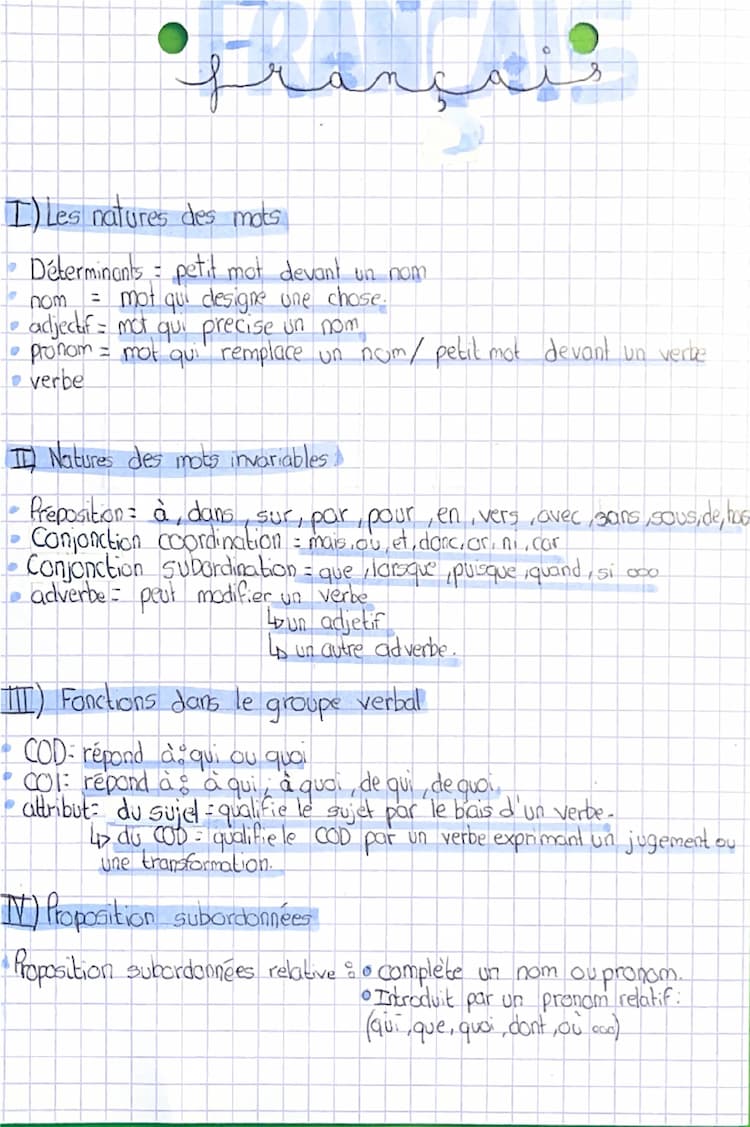 FRANÇAIS
français
I) Les natures des mots
Déterminants = petit mot devant un nom
nom = mot qui designe une chose.
adjectif = mot qui precise un nom
pronom = mot qui remplace un nom / petit mot devant un verbe
verbe
II) Natures des mots invariables
Préposition = à, dans, sur, par, pour, en, vers, avec, sans, sous, de,
Conjonction coordination = mais, ou, et, donc, or, ni, car
Conjonction subordination = que, lorsque, puisque, quand, si ooo
adverbe = peut modifier un verbe
↳ un adjetif
↳ un autre adverbe.
III) Fonctions dans le groupe verbal
COD: répond à: qui ou quoi
COI: répond à: à qui, à quoi, de qui, de quoi.
attribut: du sujet = qualifie le sujet par le biais d'un verbe.
↳ du COD = qualifie le COD par un verbe exprimant un jugement ou
une transformation.
IV) Proposition subordonnées
Proposition subordonnées relative : • complète un nom ou pronom.
• Introduit par un pronom relatif:
(qui, que, quoi, dont, où ooo)